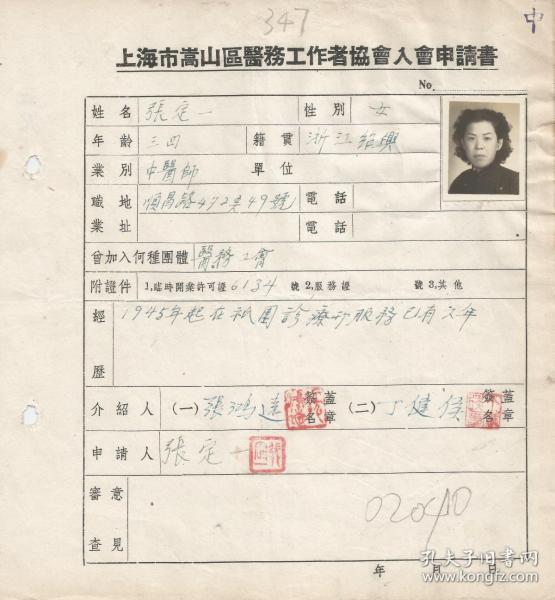 347
中
上海市嵩山區醫務工作者協會入會申請書
No.
姓名 張定一 性別 女
年齡 三四 籍貫 浙江紹興
業別 中醫師 單位
職地 順昌路472弄49號 電話
業址 電話
曾加入何種團體 醫務工會
附證件 1,臨時開業許可證 6134 號 2,服務證 號 3,其他
經歷 1945年起在祇園診療所服務已有六年
介紹人 (一) 張鴻達 簽名蓋章 (二) 丁健侯 簽名蓋章
申請人 張定一
審查意見
02040
年 月 日
孔夫子旧书网
www.kongfz.com